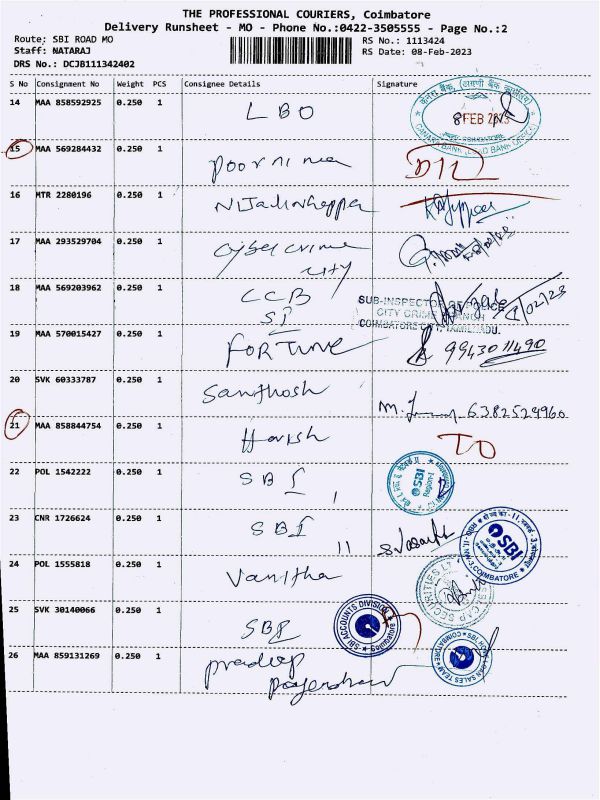 THE PROFESSIONAL COURIERS, Coimbatore
Delivery Runsheet - MO - Phone No.:0422-3505555 - Page No.:2
Route: SBI ROAD MO
Staff: NATARAJ
DRS No.: DCJB111342402
RS No.: 1113424
RS Date: 08-Feb-2023
S No Consignment No Weight PCS Consignee Details Signature
14 MAA 858592925 0.250 1 LBO 8 FEB 2023
CANARA BANK (LEAD BANK OFFICE)
15 MAA 569284432 0.250 1 Poornima
16 MTR 2280196 0.250 1
17 MAA 293529704 0.250 1 Cyber crime
city
18 MAA 569203962 0.250 1 CCB
SI
SUB-INSPECTOR OF POLICE
CITY CRIME BRANCH
COIMBATORE CITY, TAMILNADU.
19 MAA 570015427 0.250 1 FORTUNE 9943011490
20 SVK 60333787 0.250 1 Santhosh 6382524960
21 MAA 858844754 0.250 1 Harish TO
22 POL 1542222 0.250 1 SBI SBI
Region-I
23 CNR 1726624 0.250 1 SBI II
SBI
COIMBATORE
24 POL 1555818 0.250 1 Vanitha
25 SVK 30140066 0.250 1 SBI
SBI ACCOUNTS DIVISION
Coimbatore
26 MAA 859131269 0.250 1 Pradeep
SBI HOME LOAN SALES TEAM
COIMBATORE